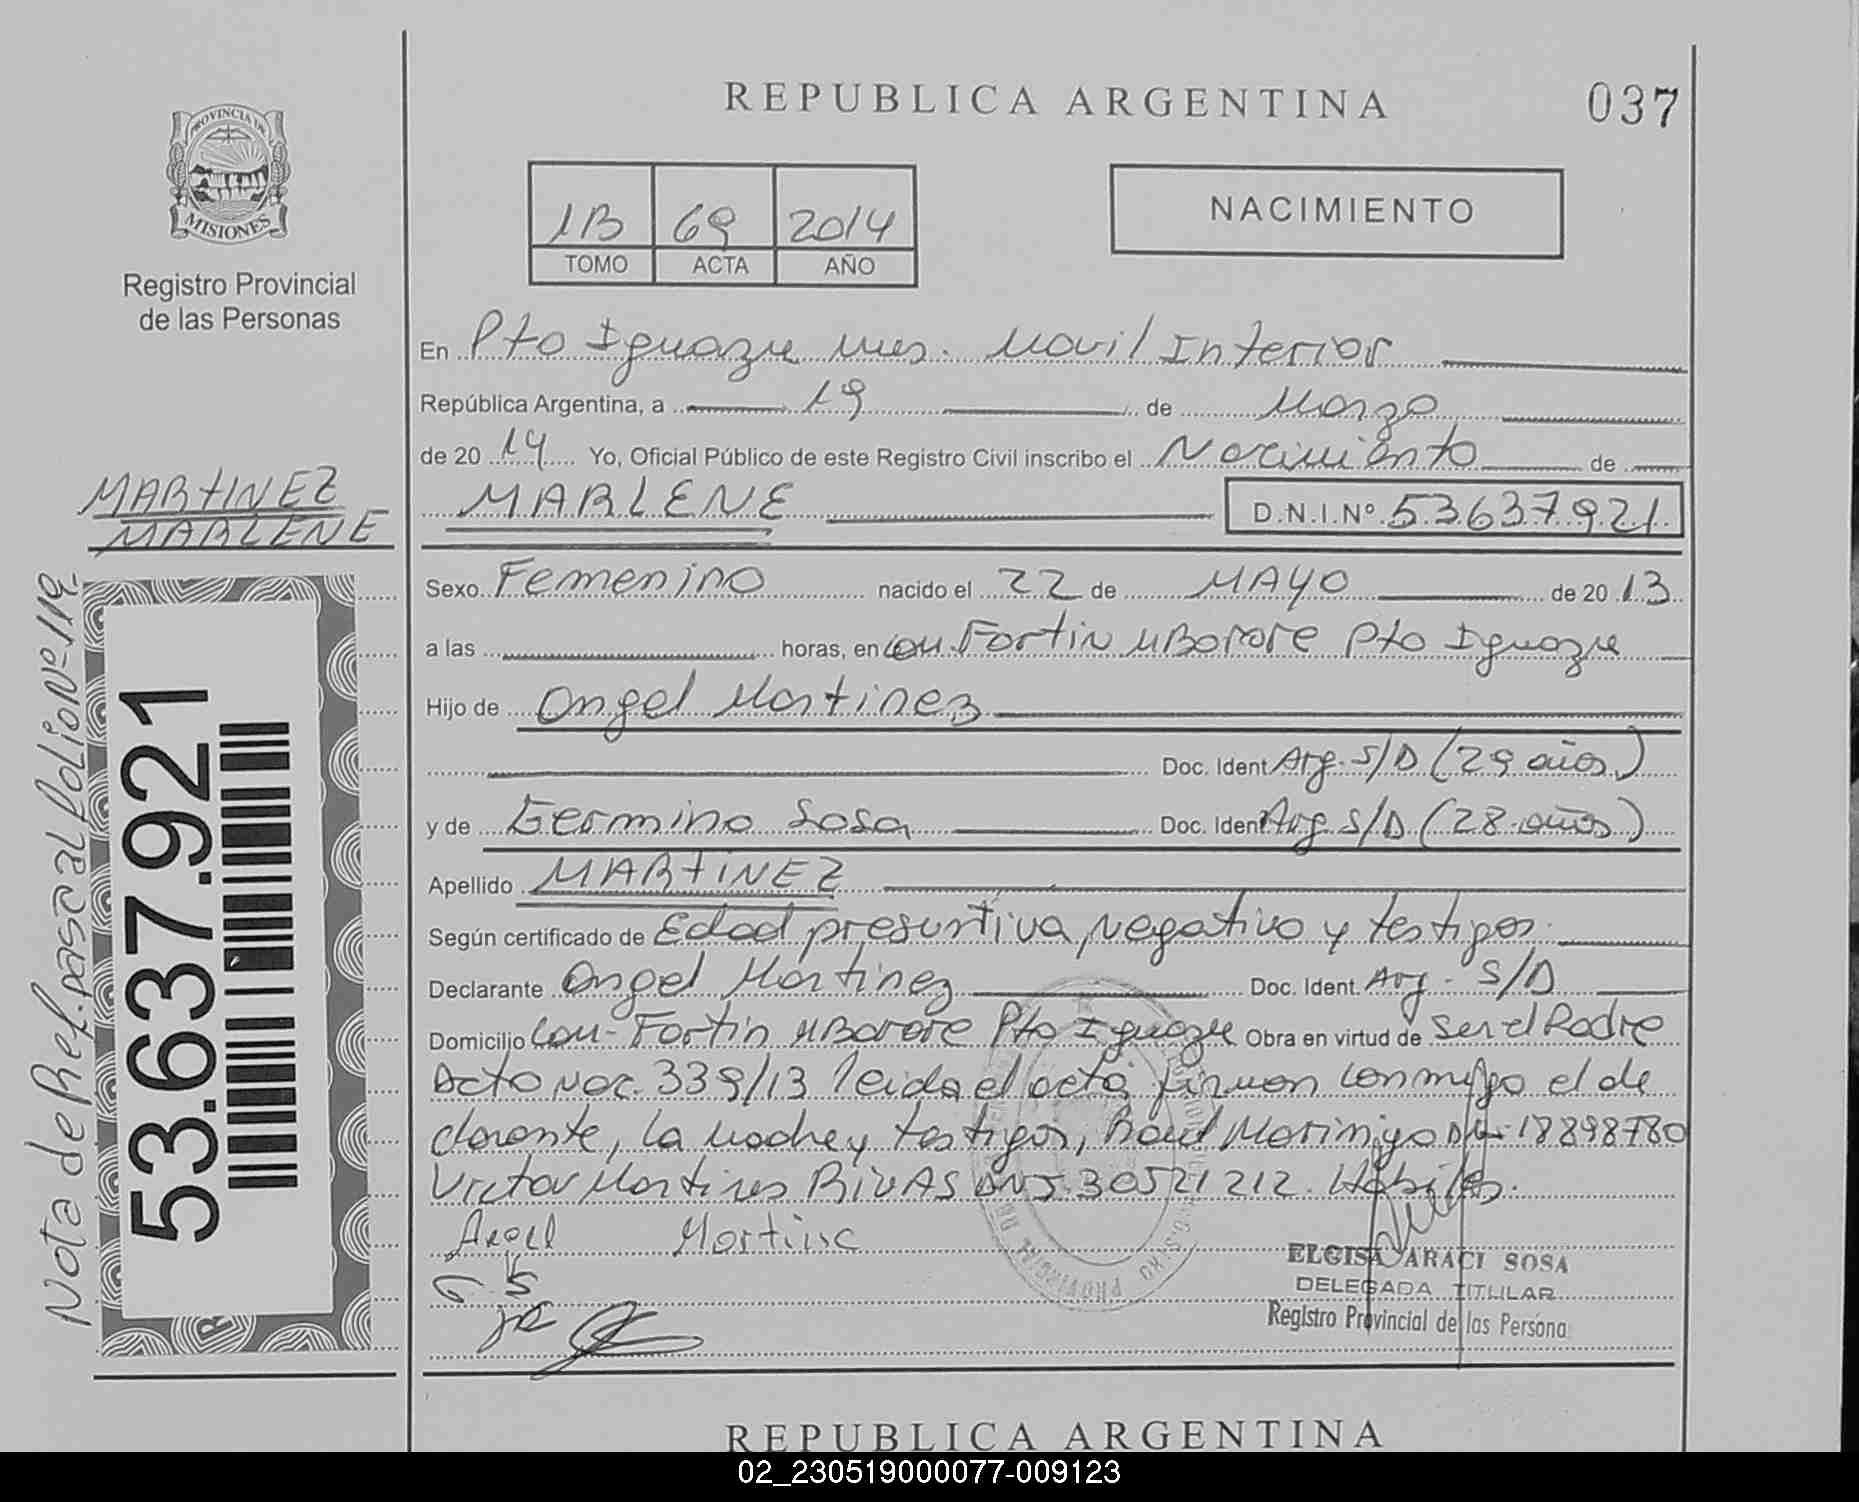 REPUBLICA ARGENTINA
037
PROVINCIA DE
MISIONES
Registro Provincial
de las Personas
1B 69 2014
TOMO ACTA AÑO
NACIMIENTO
En Pto Iguazu Mnes. Movil Interior
República Argentina, a 19 de Marzo
de 2014 Yo, Oficial Público de este Registro Civil inscribo el Nacimiento de
MARTINEZ
MARLENE
MARLENE D.N.I.Nº 53637921
Sexo Femenino nacido el 22 de MAYO de 2013
a las horas, en Com. Fortin MBorore Pto Iguazu
Hijo de Angel Martinez
Doc. Ident Arg. S/D (29 años)
y de Germina Sosa Doc. Ident Arg. S/D (28 años)
Apellido MARTINEZ
Según certificado de Edad presuntiva, negativo y testigos.
Declarante Angel Martinez Doc. Ident. Arg. S/D
Domicilio Com. Fortin MBorore Pto Iguazu Obra en virtud de ser el Padre
Acta Nac. 339/13 leida el acta, firman conmigo el de
clarante, la Madre y testigos, Raul Morinigo DNI 18898780
Victor Martines RIVAS DNI. 30521212. Habiles.
Angel Martinc
G. S
ELGISA ARACI SOSA
DELEGADA TITULAR
Registro Provincial de las Persona
Nota de Ref. pasa al folio Nº
53.637.921
REPUBLICA ARGENTINA
02_230519000077-009123